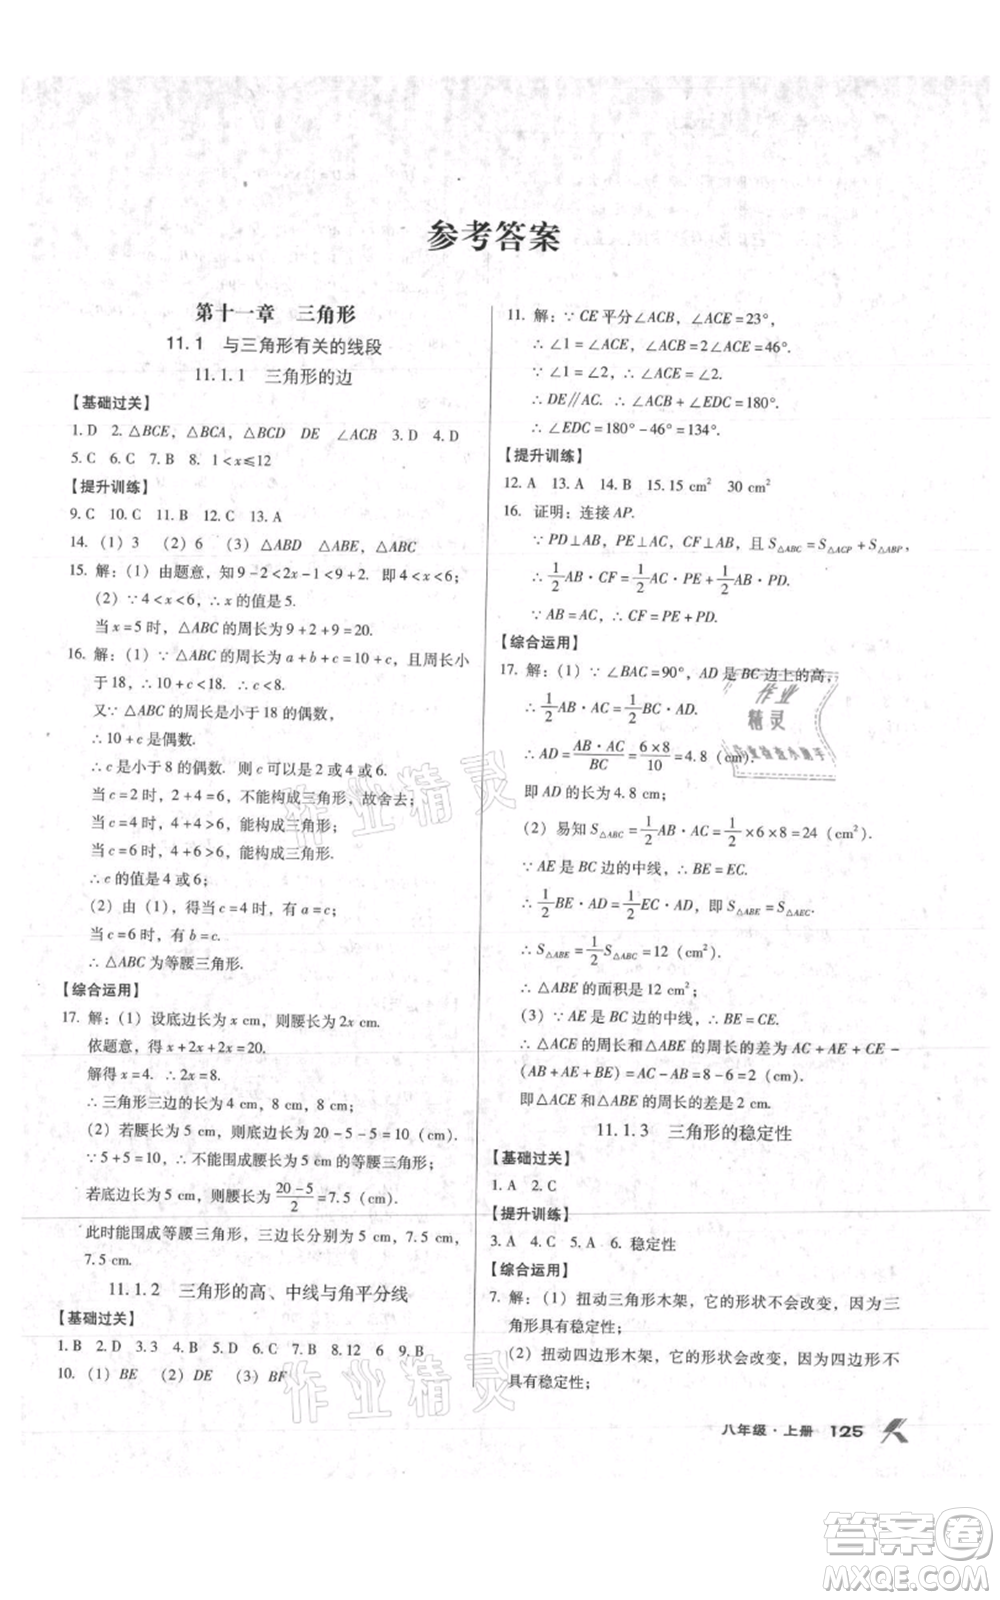 参考答案
第十一章 三角形
11.1 与三角形有关的线段
11.1.1 三角形的边
【基础过关】
1. D 2. △BCE, △BCA, △BCD DE ∠ACB 3. D 4. D
5. C 6. C 7. B 8. 1<x≤12
【提升训练】
9. C 10. C 11. B 12. C 13. A
14. (1) 3 (2) 6 (3) △ABD △ABE, △ABC
15. 解：(1) 由题意，知9-2<2x-1<9+2. 即4<x<6；
(2) ∵4<x<6, ∴x的值是5.
当x=5时，△ABC的周长为9+2+9=20.
16. 解：(1) ∵△ABC的周长为a+b+c=10+c，且周长小
于18, ∴10+c<18. ∴c<8.
又∵△ABC的周长是小于18的偶数，
∴10+c是偶数.
∴c是小于8的偶数. 则c可以是2或4或6.
当c=2时，2+4=6，不能构成三角形，故舍去；
当c=4时，4+4>6，能构成三角形.
当c=6时，4+6>6，能构成三角形.
∴c的值是4或6；
(2) 由(1)，得当c=4时，有a=c；
当c=6时，有b=c.
∴△ABC为等腰三角形.
【综合运用】
17. 解：(1) 设底边长为x cm，则腰长为2x cm.
依题意，得x+2x+2x=20.
解得x=4. ∴2x=8.
∴三角形三边的长为4 cm, 8 cm, 8 cm；
(2) 若腰长为5 cm，则底边长为20-5-5=10 (cm).
∵5+5=10, ∴不能围成腰长为5 cm的等腰三角形；
若底边长为5 cm，则腰长为\frac{20-5}{2}=7.5 (cm).
此时能围成等腰三角形，三边长分别为5 cm, 7.5 cm,
7.5 cm.
11.1.2 三角形的高、中线与角平分线
【基础过关】
1. B 2. D 3. 3 4. C 5. D 6. D 7. B 8. 12 6 9. B
10. (1) BE (2) DE (3) BF
11. 解：∵CE平分∠ACB, ∠ACE=23°,
∴∠1=∠BCE, ∠ACB=2∠ACE=46°.
∵∠1=∠2, ∴∠ACE=∠2.
∴DE∥AC. ∴∠ACB+∠EDC=180°.
∴∠EDC=180°-46°=134°.
【提升训练】
12. A 13. A 14. B 15. 15 cm² 30 cm²
16. 证明：连接AP.
∵PD⊥AB, PE⊥AC, CF⊥AB, 且S△ABC=S△ACP+S△ABP,
∴\frac{1}{2}AB·CF=\frac{1}{2}AC·PE+\frac{1}{2}AB·PD.
∵AB=AC, ∴CF=PE+PD.
【综合运用】
17. 解：(1) ∵∠BAC=90°, AD是BC边上的高，
∴\frac{1}{2}AB·AC=\frac{1}{2}BC·AD.
∴AD=\frac{AB·AC}{BC}=\frac{6×8}{10}=4.8 (cm).
即AD的长为4.8 cm；
(2) 易知S△ABC=\frac{1}{2}AB·AC=\frac{1}{2}×6×8=24 (cm²).
∵AE是BC边的中线，∴BE=EC.
∴\frac{1}{2}BE·AD=\frac{1}{2}EC·AD，即S△ABE=S△AEC.
∴S△ABE=\frac{1}{2}S△ABC=12 (cm²).
∴△ABE的面积是12 cm²；
(3) ∵AE为BC边的中线，∴BE=CE.
∴△ACE的周长和△ABE的周长的差为AC+AE+CE-
(AB+AE+BE)=AC-AB=8-6=2 (cm).
即△ACE和△ABE的周长的差是2 cm.
11.1.3 三角形的稳定性
【基础过关】
1. A 2. C
【提升训练】
3. A 4. C 5. A 6. 稳定性
【综合运用】
7. 解：(1) 扭动三角形木架，它的形状不会改变，因为三
角形具有稳定性；
(2) 扭动四边形木架，它的形状会改变，因为四边形不
具有稳定性；
八年级·上册 125
作业精灵
作业精灵
作业
精灵
答案圈
MXQE.COM